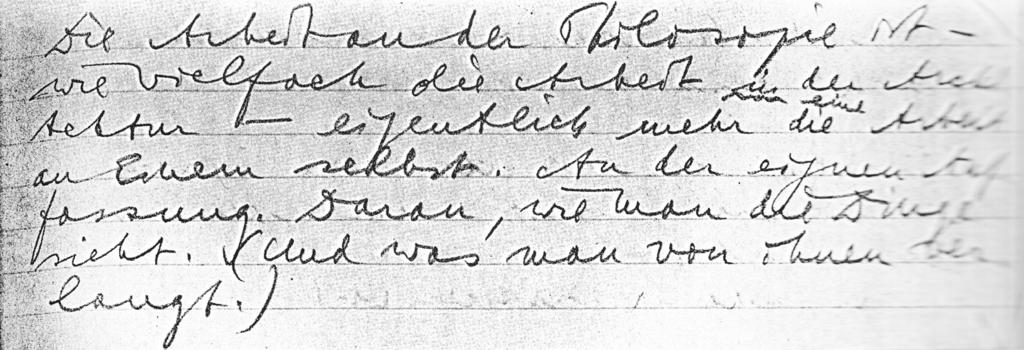 Die Arbeit an der Philosophie ist –
wie vielfach die Arbeit in der Archi
tektur – eigentlich mehr die eine Arbeit
an Einem selbst. An der eignen Auf
fassung. Daran, wie man die Dinge
sieht. (Und was man von ihnen ver
langt.)